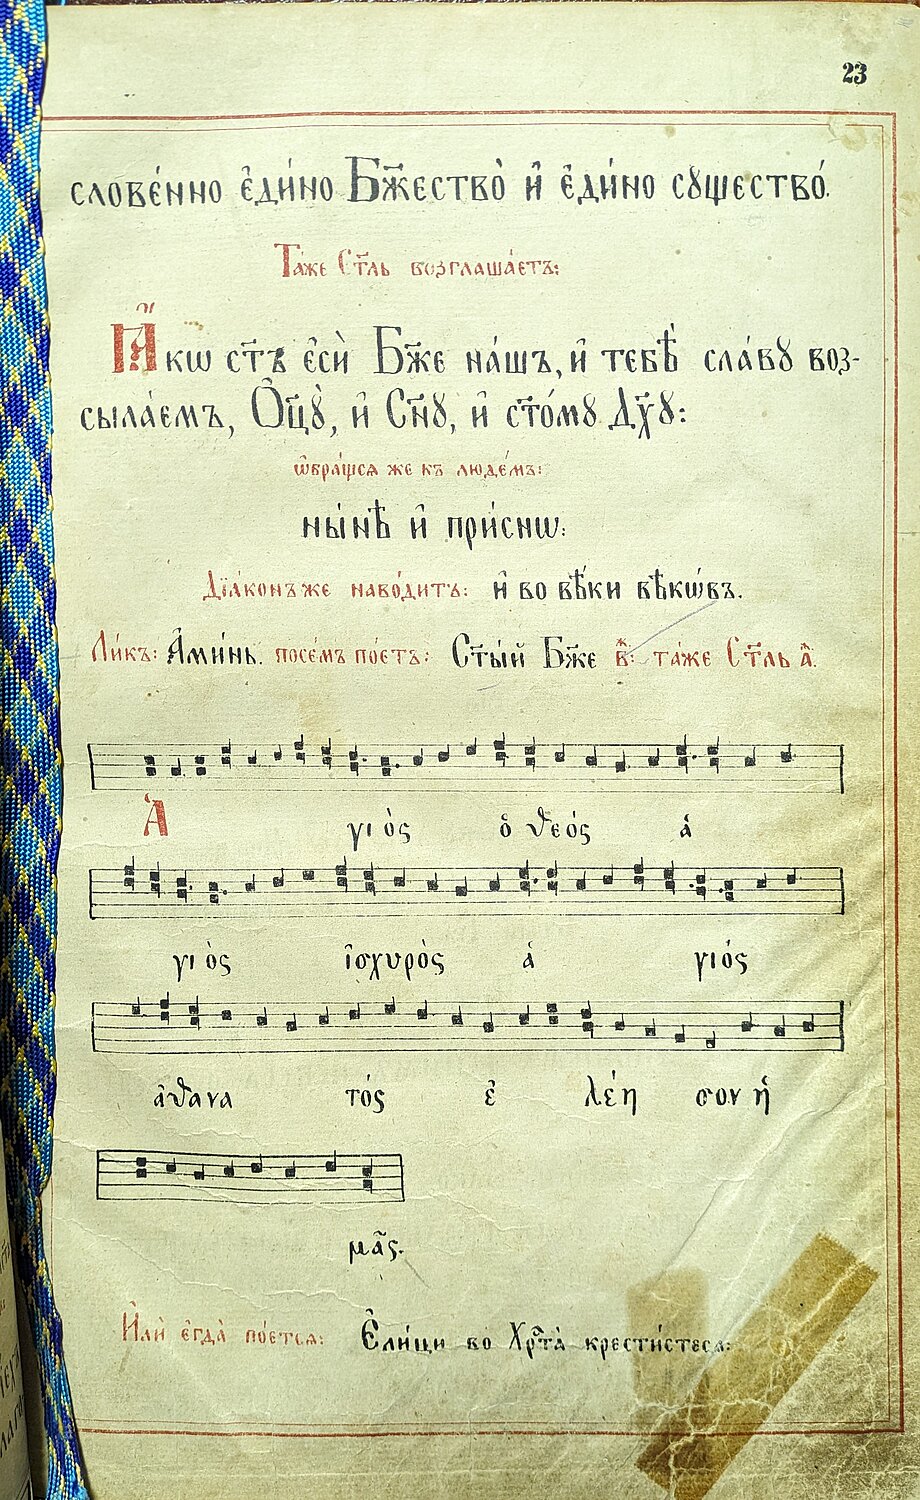 23
слове́нно є҆ди́но Бж҃ество̀ и҆ є҆ди́но сꙋщество́.
Та́же Ст҃ль возглаша́етъ:
Ꙗ҆́кѡ ст҃ъ є҆сѝ Бж҃е на́шъ, и҆ тебѣ̀ сла́вꙋ воз-
сыла́емъ, Ѻ҆ц҃ꙋ̀, и҆ Сн҃ꙋ, и҆ ст҃о́мꙋ Дх҃ꙋ:
ѡ҆бра́щся же къ люде́мъ:
ны́нѣ и҆ при́снѡ:
Дїа́конъ же наво́дитъ: и҆ во вѣ́ки вѣкѡ́въ.
Ли́къ: А҆ми́нь. посе́мъ пое́тъ: Ст҃ы́й Бж҃е в҃: та́же Ст҃ль а҃.
Ἅ γι ὸς ὁ ϑεός ἅ
γι ὸς ἰσχυρὸς ἅ γιός
ἀϑανα τός ἐ λέη σον ἡ
μᾶς.
И҆лѝ є҆гда̀ пое́тсѧ: Е҆ли́цы во Хрⷭ҇та̀ крести́стесѧ: